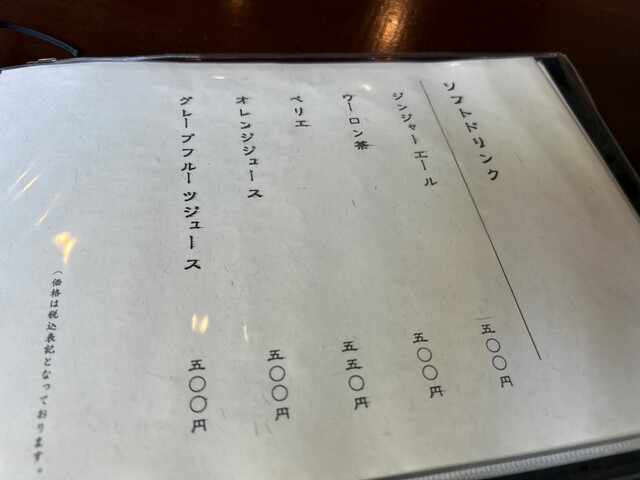 ソフトドリンク
ジンジャーエール 五〇〇円
ウーロン茶 五〇〇円
ペリエ 五五〇円
オレンジジュース 五〇〇円
グレープフルーツジュース 五〇〇円
（価格は税込表記となっております。